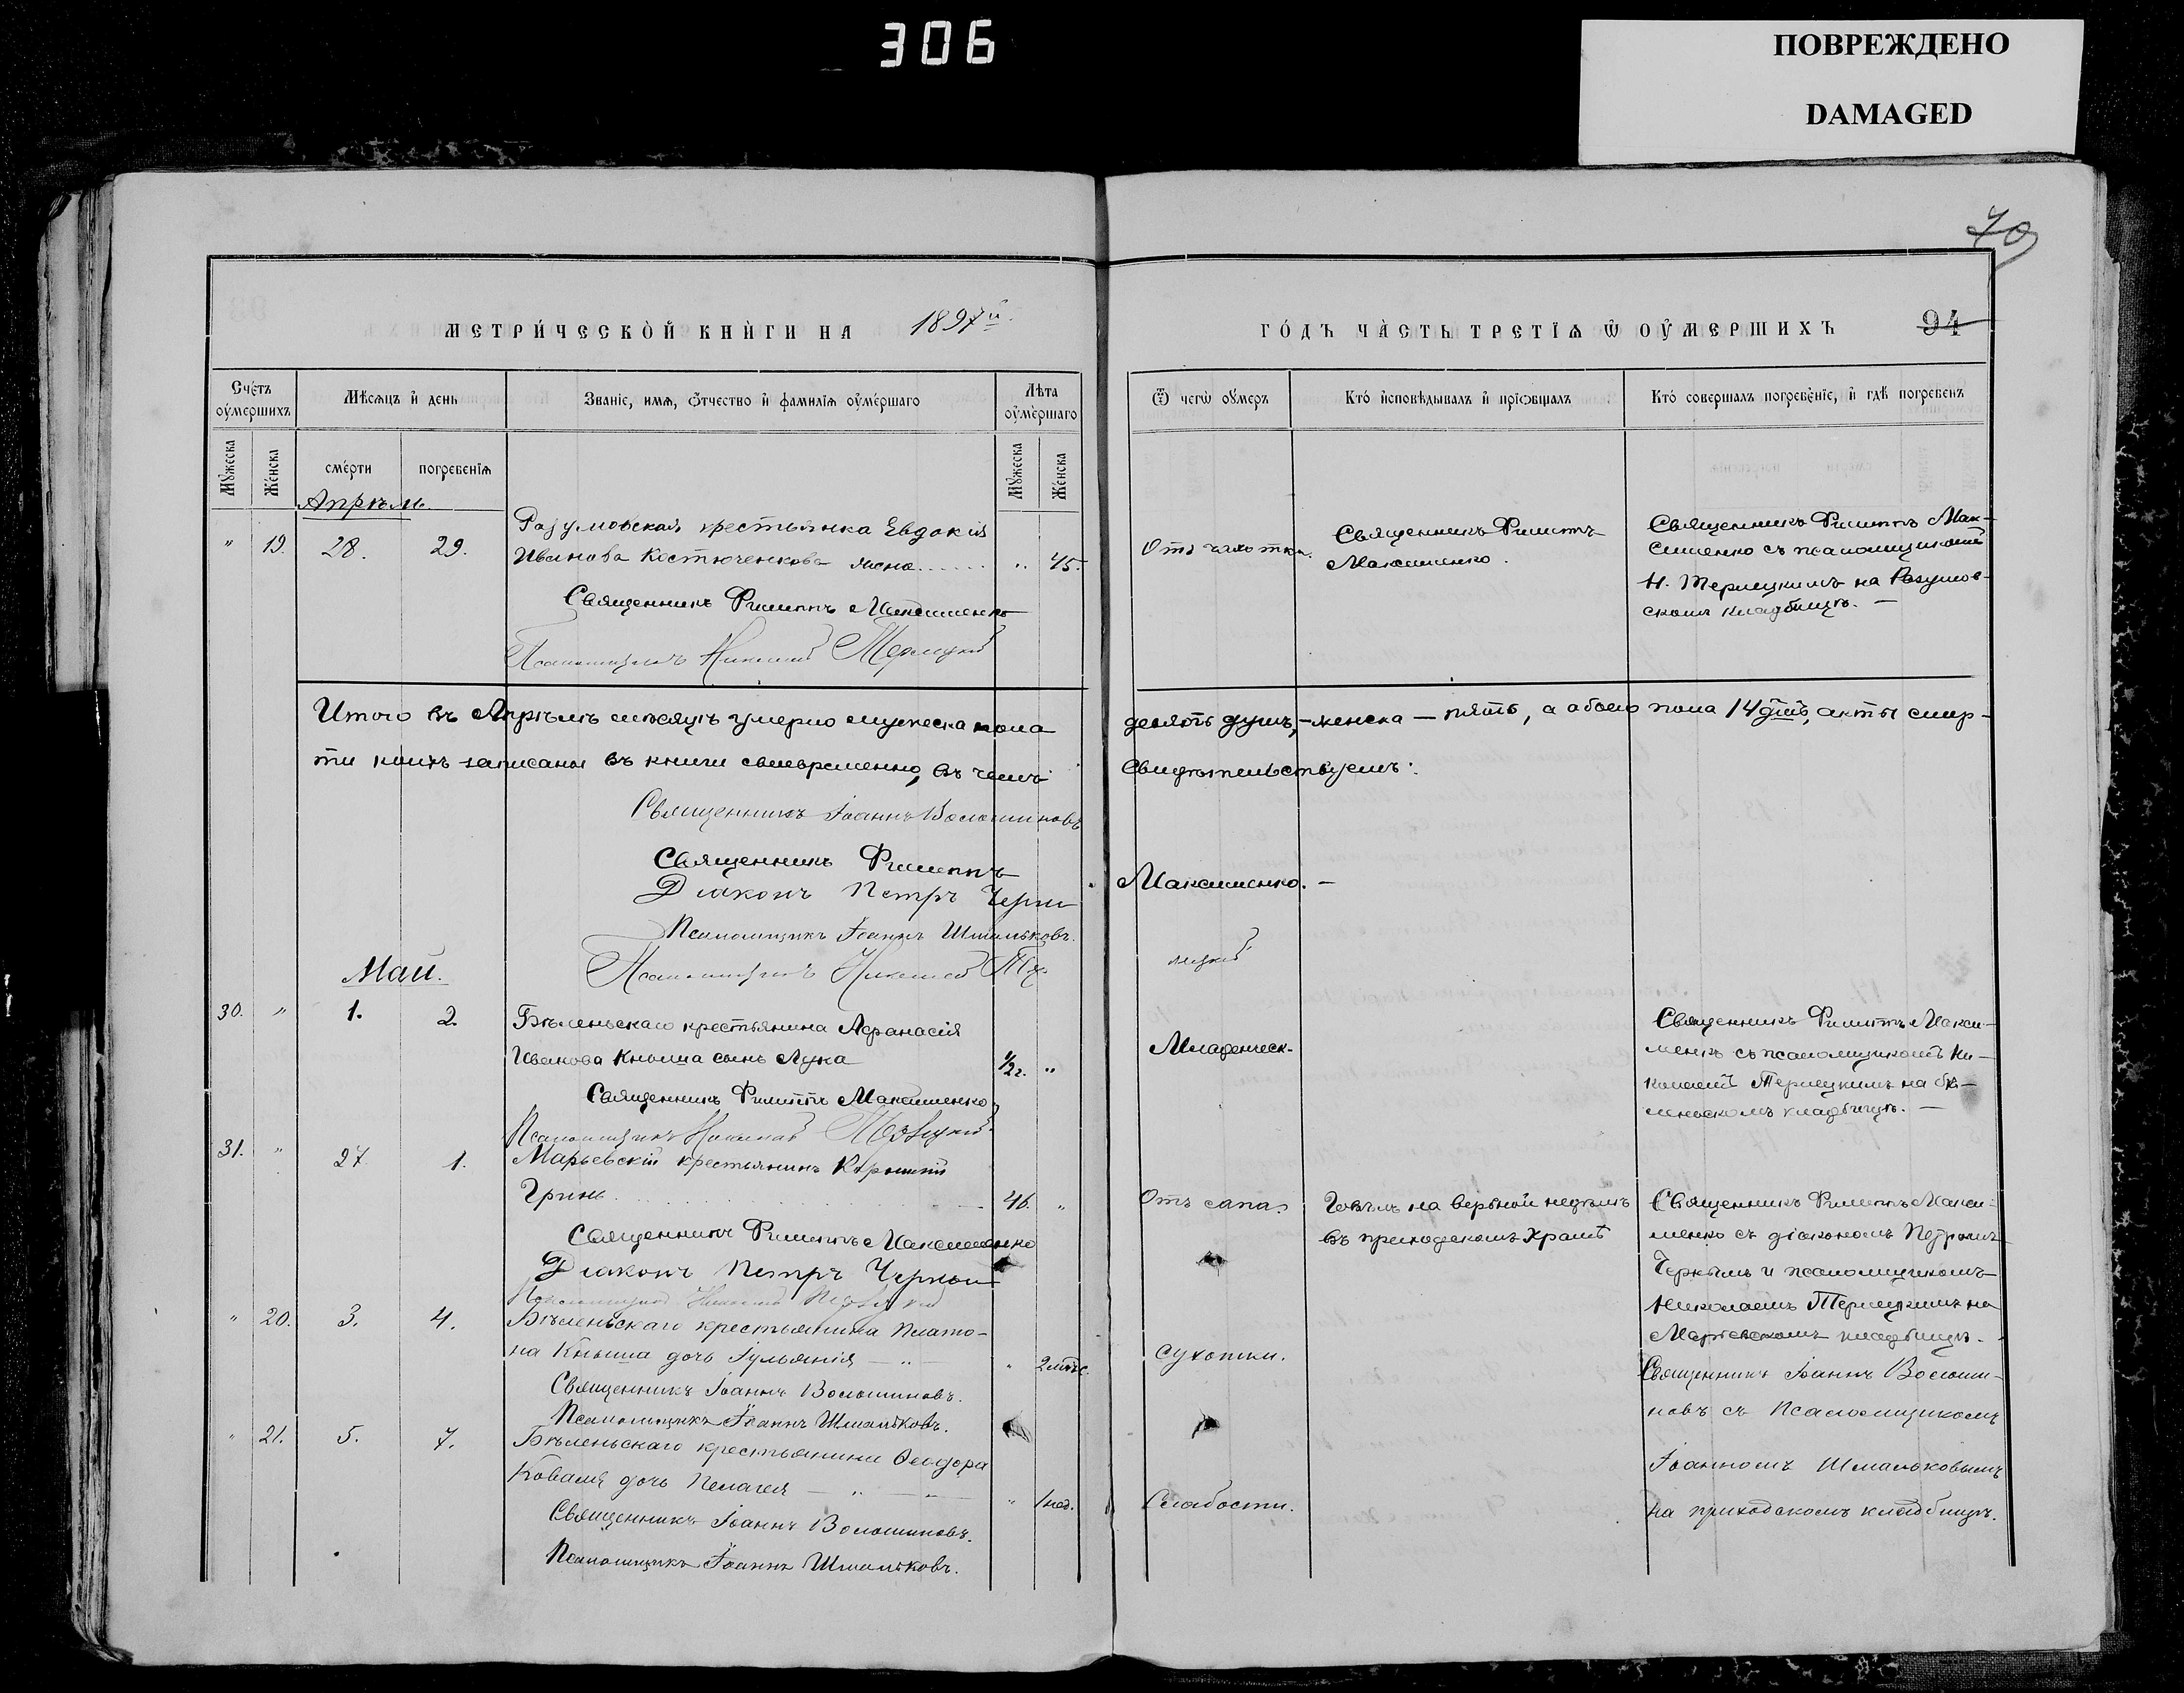 306
ПОВРЕЖДЕНО
DAMAGED
70
МЕТРИ́ЧЕСКОЙ КНИ́ГИ НА 1897й
ГО́ДЪ ЧА́СТЬ ТРЕТІѦ Ѡ ОУ҆МЕРШИХЪ
94
Счетъ оумершихъ
Мѣсяцъ и день
Званіе, имя, ѻтчество и фамилія оумершаго
Лѣта оумершаго
Ѿ чегѡ оумеръ
Кто исповѣдывалъ и пріѡбщалъ
Кто совершалъ погребеніе, и гдѣ погребенъ
Мужеска
Женска
смерти
погребенія
Мужеска
Женска
Апрѣль
" 19. 28. 29.
Разумовская крестьянка Евдокія
Иванова Костюченкова жена ...... " 45.
Священникъ Филиппъ Максименко
Псаломщикъ Николай Терлецкій
Отъ чахотки.
Священникъ Филиппъ
Максименко.
Священникъ Филиппъ Мак-
сименко съ псаломщикомъ
Н. Терлецкимъ на Разумов-
скомъ кладбищѣ. —
Итого въ Апрѣлѣ мѣсяцѣ умерло мужеска пола девять душъ, – женска — пять, а обоего пола 14 душъ, акты смер-
ти коихъ записаны въ книги своевременно, въ чемъ свидѣтельствуемъ:
Священникъ Іоаннъ Волошиновъ
Священникъ Филиппъ Максименко. —
Діаконъ Петръ Черны
Псаломщикъ Іоаннъ Шмальковъ.
Псаломщикъ Николай Тер лецкій
Май.
30. " 1. 2.
Бѣленьскаго крестьянина Афанасія
Иванова Кныша сынъ Лука 1/2 г. "
Священникъ Филиппъ Максименко
Псаломщикъ Николай Терлецкій
Младенческ.
Священникъ Филиппъ Макси-
менко съ псаломщикомъ Ни-
колаемъ Терлецкимъ на бѣ-
леньскомъ кладбищѣ. —
31. " 27 1.
Марьевскій крестьянинъ Корнилій
Гринь 46. "
Священникъ Филиппъ Максименко
Діаконъ Петръ Черный
Псаломщикъ Николай Терлецкій
Отъ сапа.
Говѣлъ на вербной недѣлѣ
въ приходскомъ Храмѣ
Священникъ Филиппъ Макси-
менко съ діакономъ Петромъ
Чернымъ и псаломщикомъ
Николаемъ Терлецкимъ на
Марьевскомъ кладбищѣ. -
" 20. 3. 4.
Бѣленьскаго крестьянина Плато-
на Кныша дочь Іульянія — " — " 2 мѣс.
Священникъ Іоаннъ Волошиновъ.
Псаломщикъ Іоаннъ Шмальковъ.
Сухотки.
Священникъ Іоаннъ Волоши-
новъ съ Псаломщикомъ
Іоанномъ Шмальковымъ
на приходскомъ кладбищѣ.
" 21. 5. 7.
Бѣленьскаго крестьянина Ѳеодора
Коваля дочь Пелагея — " — " — " 1 нед.
Священникъ Іоаннъ Волошиновъ.
Псаломщикъ Іоаннъ Шмальковъ.
Слабости.